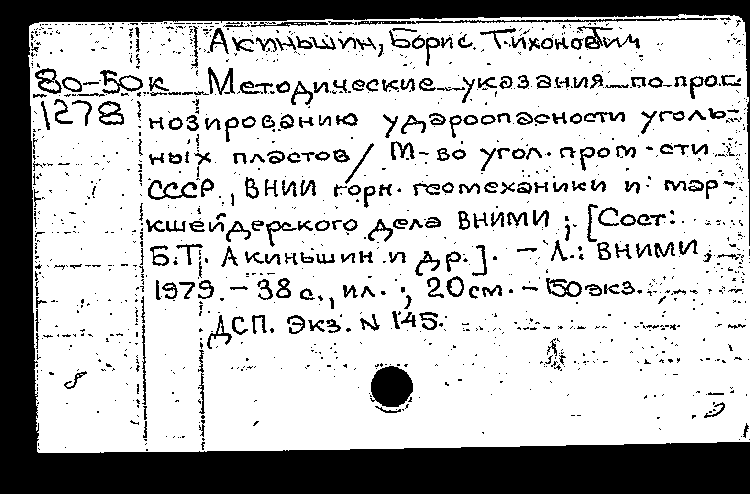 Акиньшин, Борис Тихонович
80-50к Методические указания по прог-
1278 нозированию удароопасности уголь-
ных пластов / М-во угол. пром-сти
СССР, ВНИИ горн. геомеханики и мар-
кшейдерского дела ВНИМИ ; [Сост:
Б.Т. Акиньшин и др.]. - Л.: ВНИМИ,
1979. - 38 с., ил. ; 20 см. - 150 экз.
ДСП. Экз. N 145.